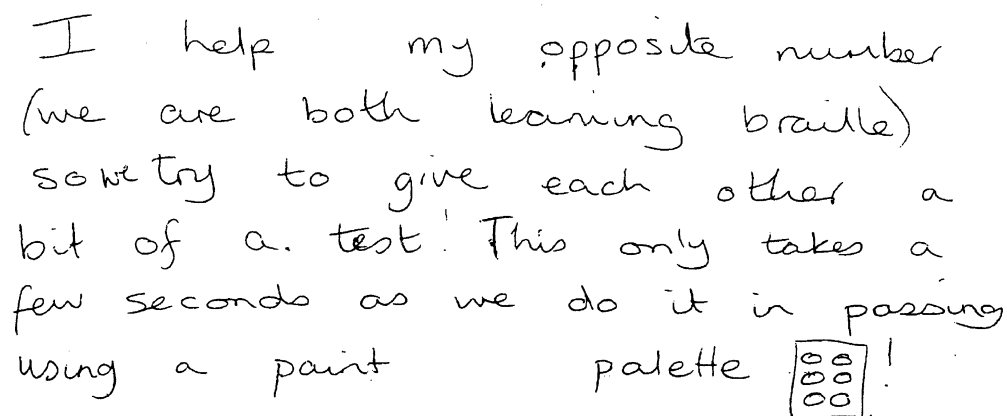 I help my opposite number
(we are both learning braille)
so we try to give each other a
bit of a. test! This only takes a
few seconds as we do it in passing
using a paint palette !